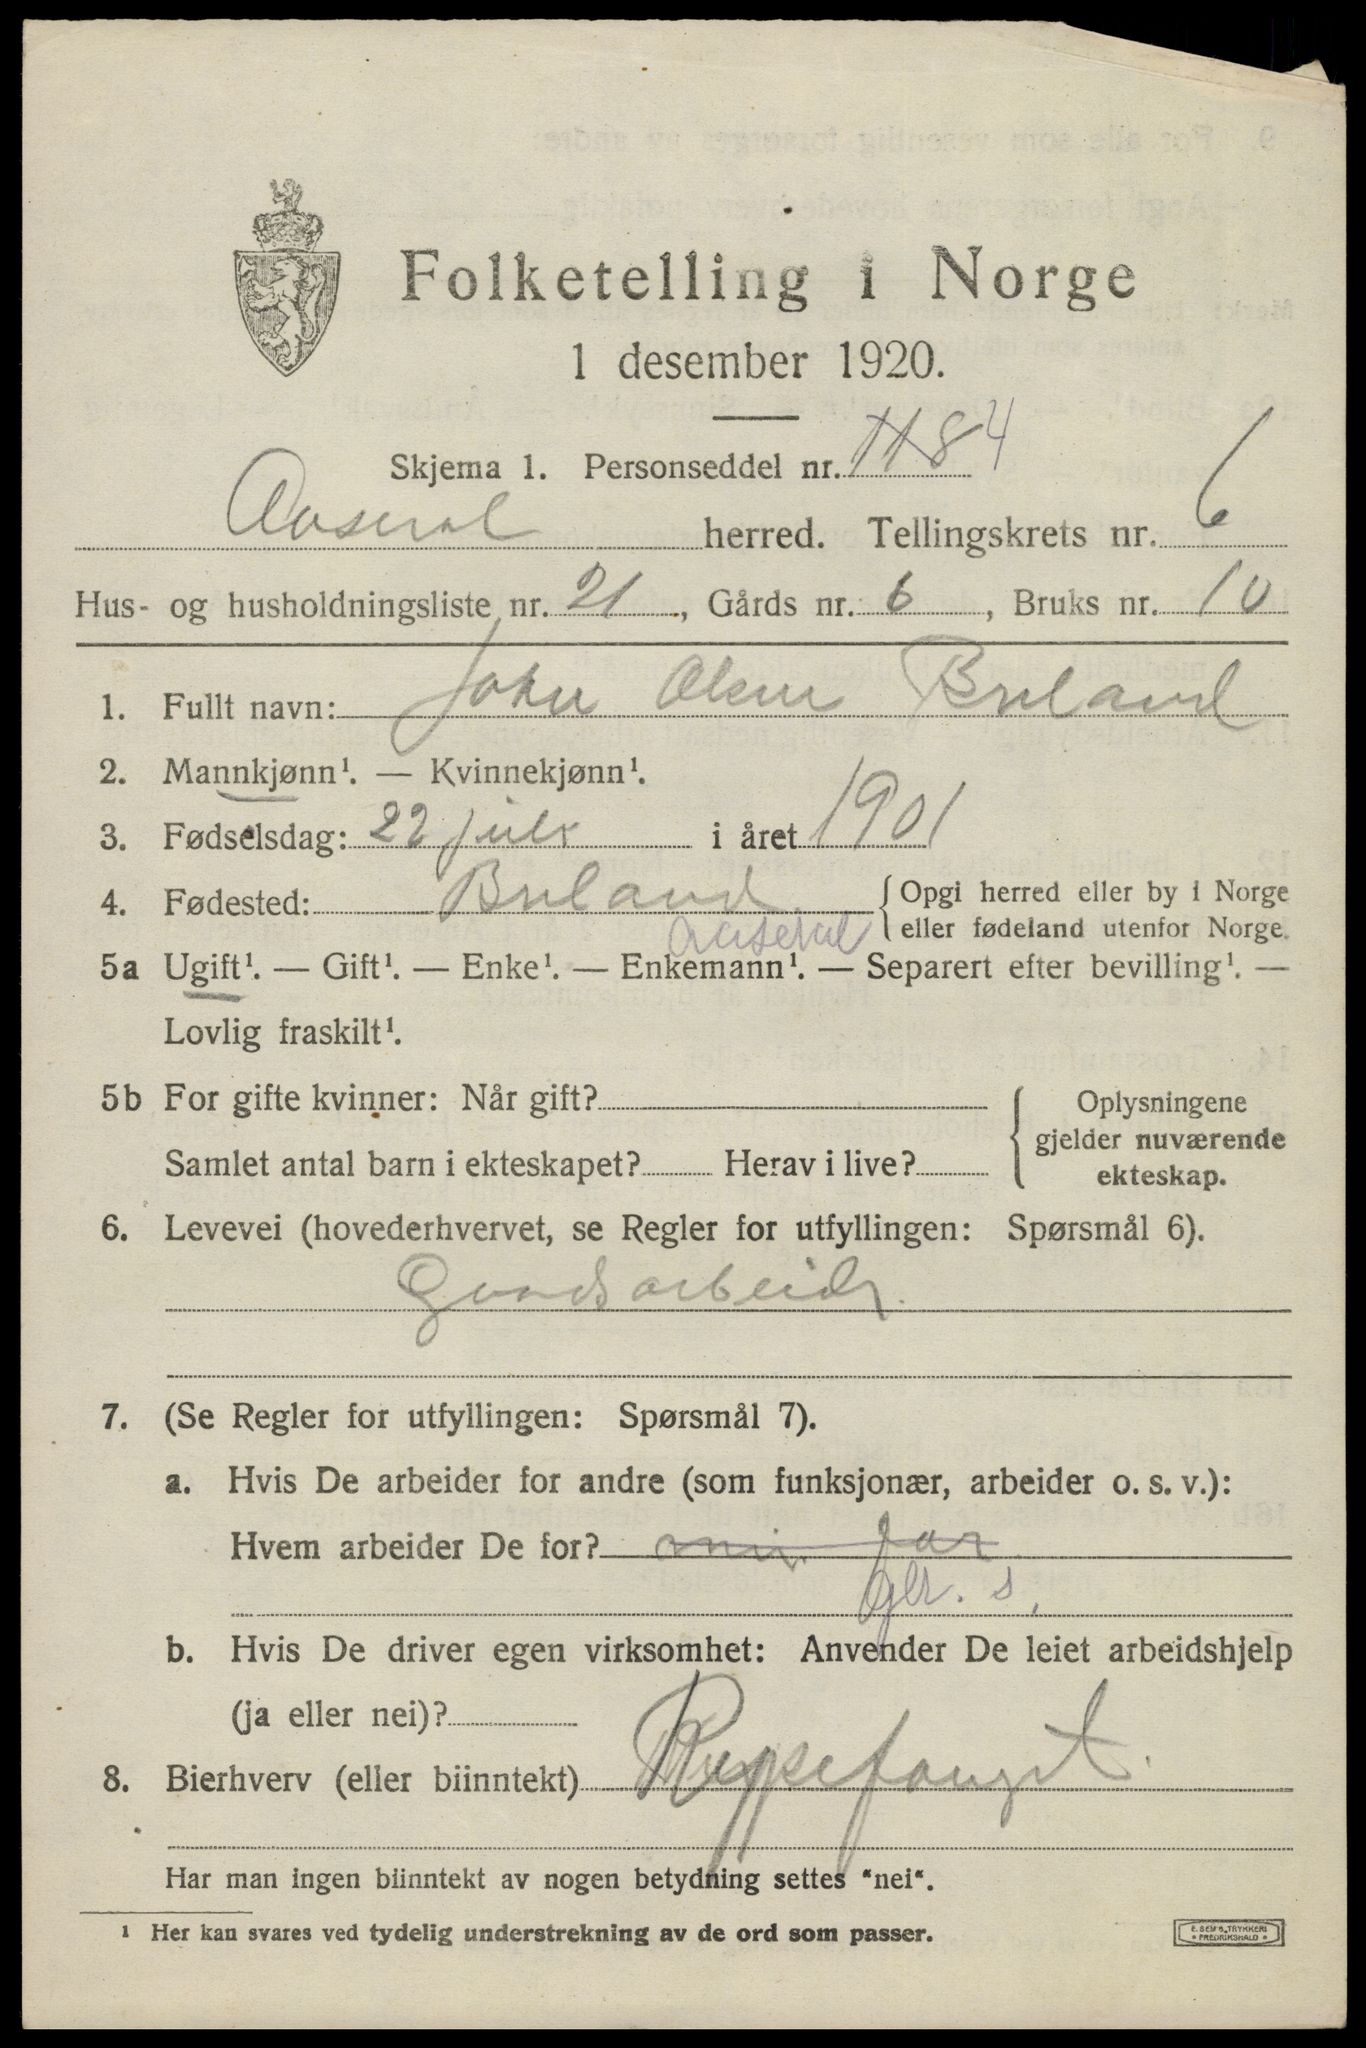 Folketelling i Norge
1 desember 1920.
Skjema 1. Personseddel nr. 1184
Aaseral herred. Tellingskrets nr. 6
Hus- og husholdningsliste nr. 21, Gårds nr. 6, Bruks nr. 10
1. Fullt navn: John Olsen Breland
2. Mannkjønn¹. — Kvinnekjønn¹.
3. Fødselsdag: 22 juli i året 1901
4. Fødested: Breland { Opgi herred eller by i Norge
eller fødeland utenfor Norge.
Aaseral
5a Ugift¹. — Gift¹. — Enke¹. — Enkemann¹. — Separert efter bevilling¹. —
Lovlig fraskilt¹.
5b For gifte kvinner: Når gift? { Oplysningene
gjelder nuværende
Samlet antal barn i ekteskapet? Herav i live? ekteskap.
6. Levevei (hovederhvervet, se Regler for utfyllingen: Spørsmål 6).
Gaardsarbeide.
7. (Se Regler for utfyllingen: Spørsmål 7).
a. Hvis De arbeider for andre (som funksjonær, arbeider o. s. v.):
Hvem arbeider De for? min far
s.
b. Hvis De driver egen virksomhet: Anvender De leiet arbeidshjelp
(ja eller nei)?
8. Bierhverv (eller biinntekt) Rypefangst.
Har man ingen biinntekt av nogen betydning settes "nei".
¹ Her kan svares ved tydelig understrekning av de ord som passer.
E. SEM'S TRYKKERI
* FREDRIKSHALD *